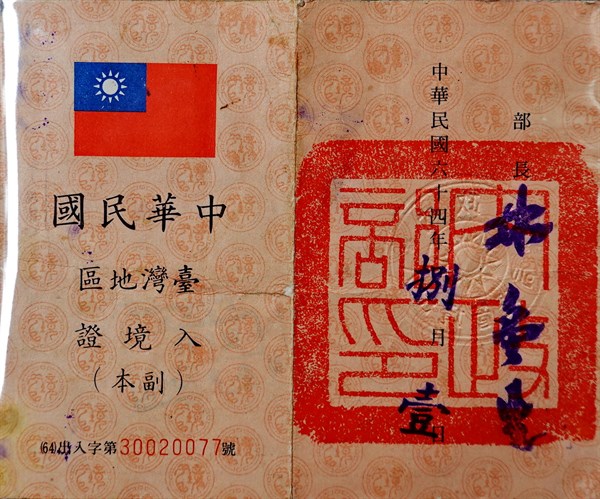 中華民國
臺灣地區
入境證
(副本)
(64)出入字第30020077號
部長 林金生
中華民國六十四年捌月壹日
內政
部印